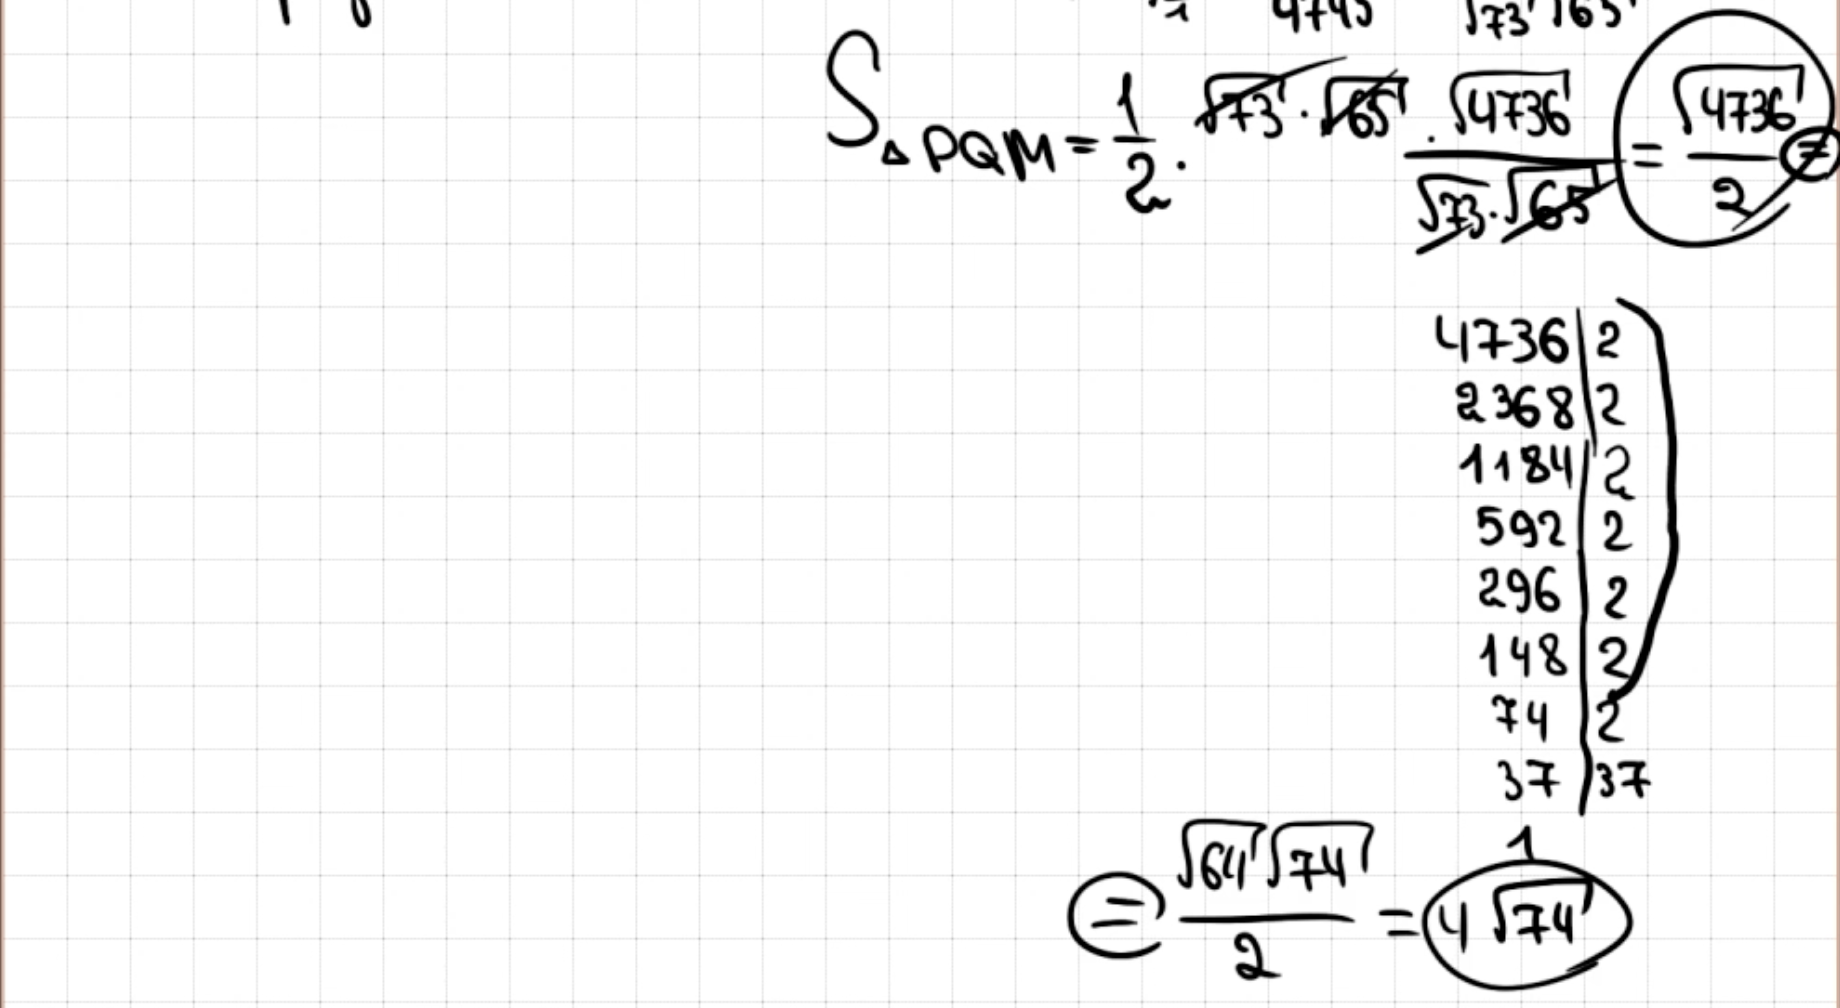 4745 √73 √65
S△PQM = 1/2 · √73 · √65 · √4736 / √73 · √65 = √4736 / 2 =
4736 | 2
2368 | 2
1184 | 2
592 | 2
296 | 2
148 | 2
74 | 2
37 | 37
1
= √64 √74 / 2 = 4 √74